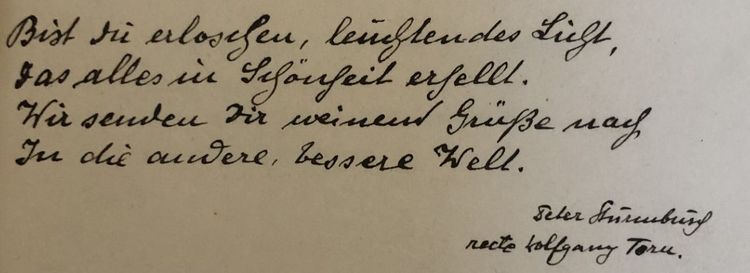 Bist du erloschen, leuchtendes Licht,
Das alles in Schönheit erhellt.
Wir senden Dir weinend Grüße nach
In die andere, bessere Welt.
Peter Sturmbusch
recte Wolfgang Torn.